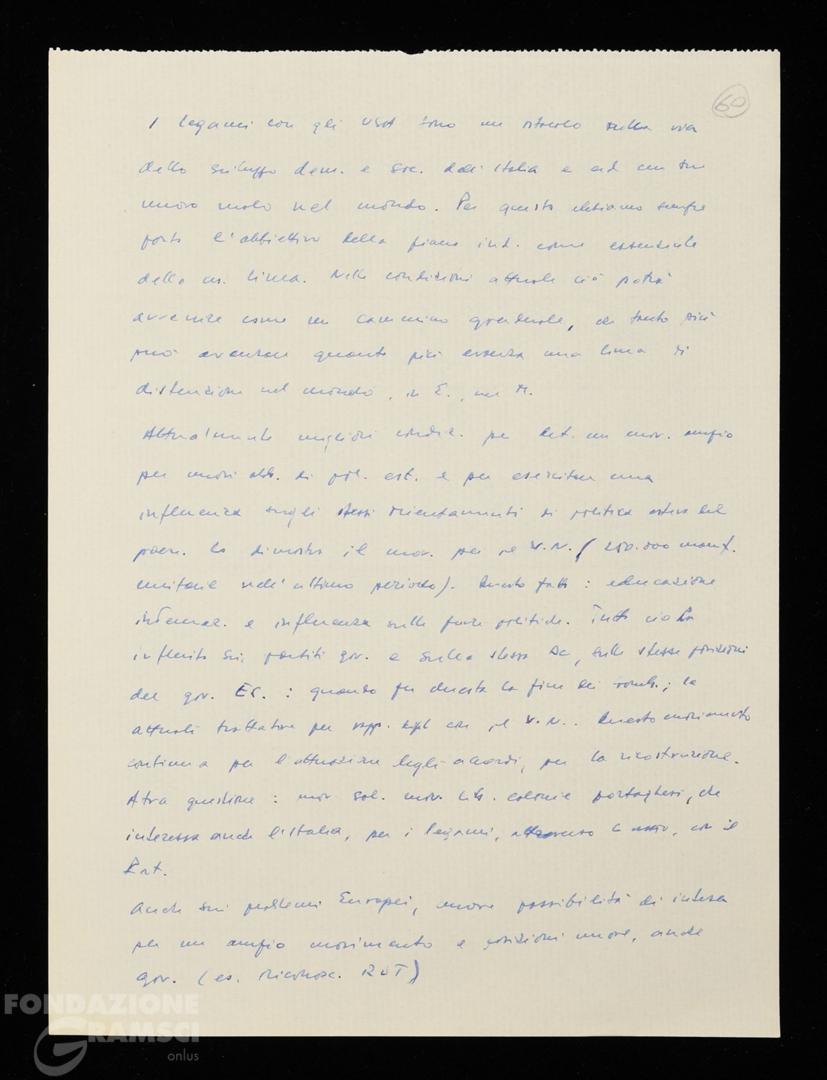 60
I legami con gli USA sono un ostacolo sulla via
dello sviluppo dem. e soc. dell'Italia e ad un suo
nuovo ruolo nel mondo. Per questo abbiamo sempre
posto l'obbiettivo della piena ind. come essenziale
della ns. linea. Nelle condizioni attuali ciò potrà
avvenire come un cammino graduale, che tanto più
può avanzare quanto più avanza una linea di
distensione nel mondo, in E., nel M.
Attualmente migliori condiz. per un mov. ampio
per nuovi di pol. est. e per esercitare una
influenza sugli stessi orientamenti di politica estera del
paese. Lo dimostra il mov. per il V.N. ( 250.000 manif.
unitarie nell'ultimo periodo). Questo fatto : educazione
internaz. e influenza sulle forze politiche. Tutto ciò ha
influito sui partiti gov. e sulla stessa DC, sulle stesse posizioni
del gov. : quando fu chiesta la fine dei bomb.; le
attuali trattative per rapp. dipl. con il V.N.. Questo movimento
continua per l'attuazione degli accordi, per la ricostruzione.
Altra questione : mov. sol. mov. lib. colonie portoghesi, che
interessa anche l'Italia, per i legami, attraverso la NATO, con il
Port.
Anche sui problemi Europei, nuove possibilità di intesa
per un ampio movimento e posizioni nuove, anche
gov. (es. riconosc. RDT)
FONDAZIONE
GRAMSCI
onlus